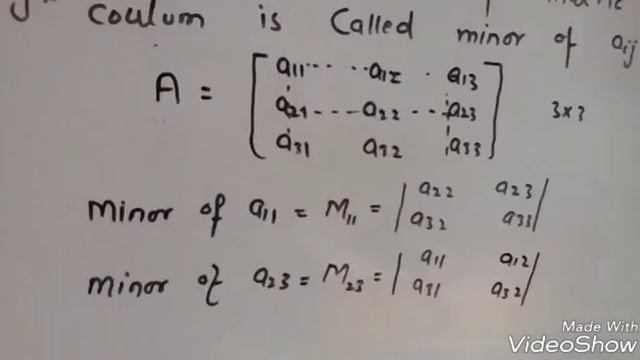 coulum is Called minor of aij
A = [ a11 ..... a12 . a13
a21 .... a22 ... a23 3x3
a31 a32 a33 ]
Minor of a11 = M11 = | a22 a23
a32 a33 |
minor of a23 = M23 = | a11 a12
a31 a32 |
Made With
VideoShow